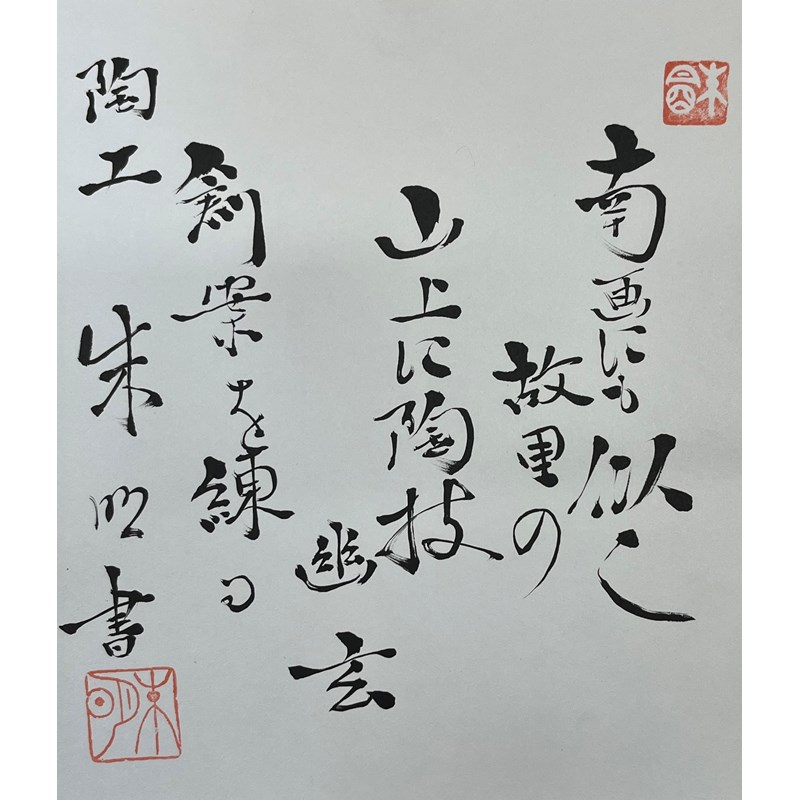 南画にも似し
故里の
山上に陶技
幽玄
創案を練る
陶工 朱明書
朱明